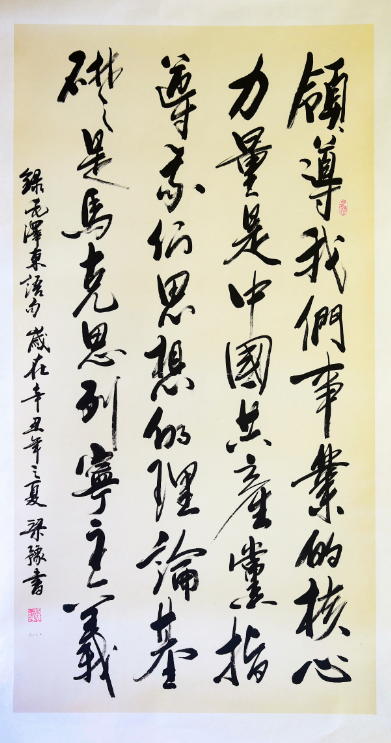 領導我們事業的核心
力量是中國共產黨指
導我們思想的理論基
礎是馬克思列寧主義
錄毛澤東語句 歲在辛丑年之夏 梁豫書